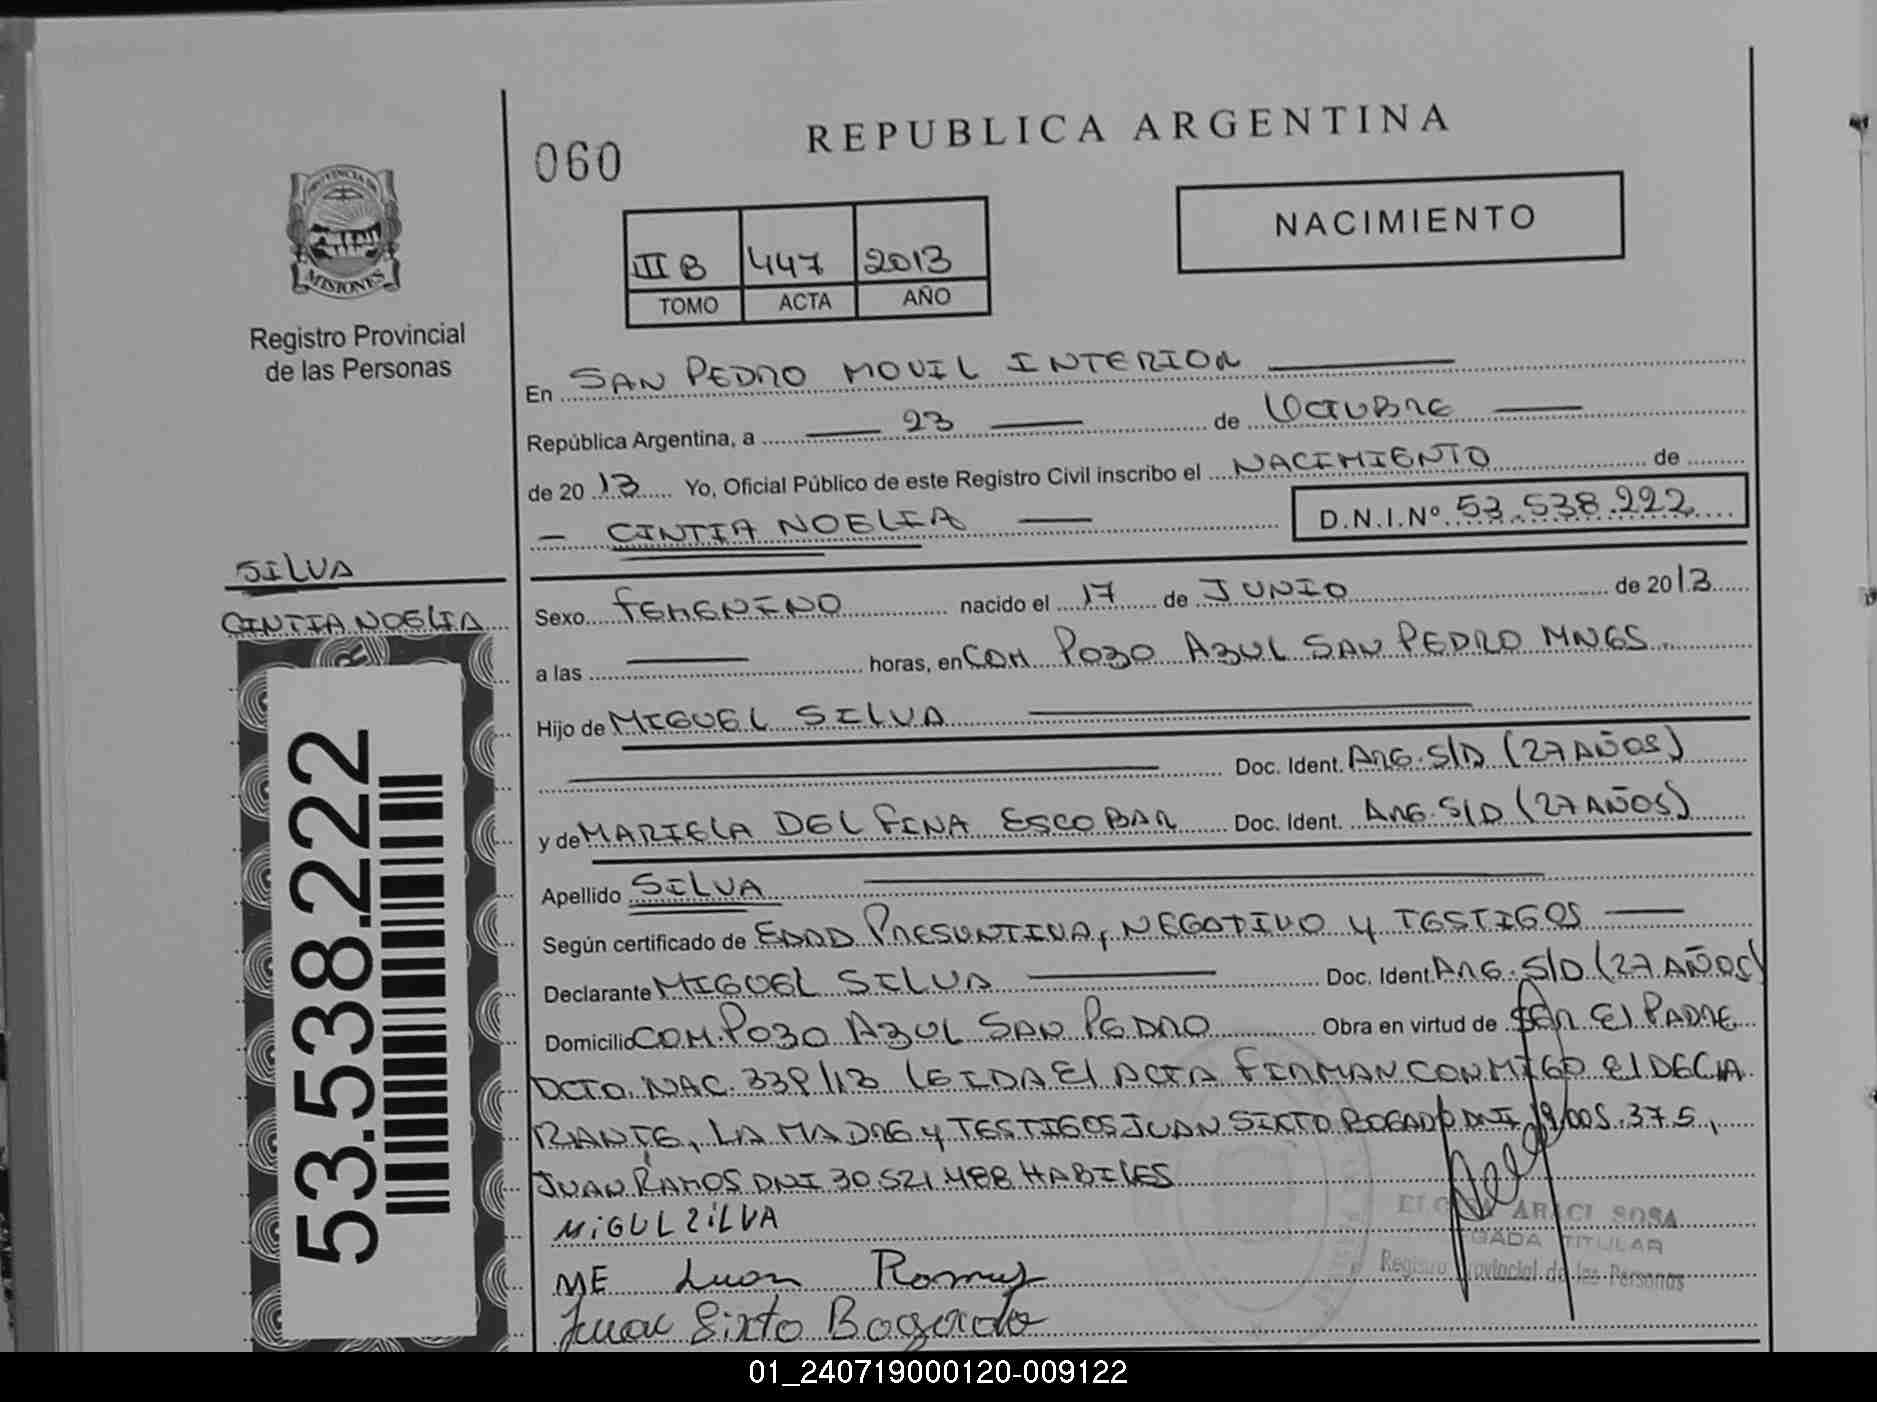 REPUBLICA ARGENTINA
060
NACIMIENTO
III B 447 2013
TOMO ACTA AÑO
PROVINCIA DE
MISIONES
Registro Provincial
de las Personas
En SAN PEDRO MOVIL INTERIOR
República Argentina, a 23 de OCTUBRE
de 2013 Yo, Oficial Público de este Registro Civil inscribo el NACIMIENTO de
CINTIA NOELIA D.N.I.Nº 53.538.222
SILVA
CINTIA NOELIA
53.538.222
Sexo FEMENINO nacido el 17 de JUNIO de 2013
a las horas, en COM POZO AZUL SAN PEDRO MNES
Hijo de MIGUEL SILVA
Doc. Ident. ARG. S/D (27 AÑOS)
y de MARIELA DELFINA ESCOBAR Doc. Ident. ARG. S/D (27 AÑOS)
Apellido SILVA
Según certificado de EDAD PRESUNTIVA, NEGATIVO Y TESTIGOS
Declarante MIGUEL SILVA Doc. Ident. ARG. S/D (27 AÑOS)
Domicilio COM. POZO AZUL SAN PEDRO Obra en virtud de SER El PADRE
DCTO. NAC. 339/13 LEIDA El ACTA FIRMAN CONMIGO El DECLA
RANTE, LA MADRE Y TESTIGOS JUAN SIXTO BOGADO DNI 19.005.375,
JUAN RAMOS DNI 30.521.488 HABILES
MiGUL ZiLVA
ME Juan Ramos
Juan Sixto Bogado
ARACI SOSA
TITULAR
Registro Provincial de las Personas
01_240719000120-009122